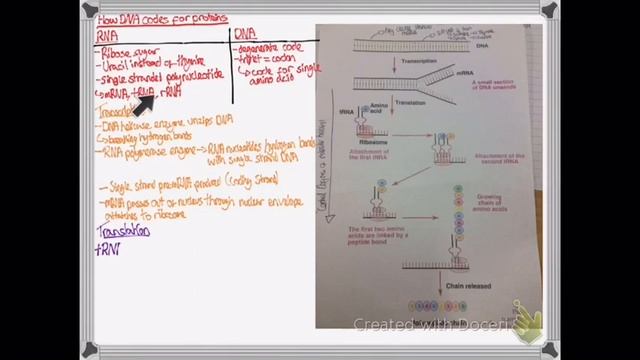 How DNA codes for proteins
RNA
DNA
- Ribose sugar
- Uracil instead of thymine
- single stranded polynucleotide
↳ mRNA, tRNA, rRNA
- degenerate code
- triplet = codon
↳ code for single
amino acid
Transcription
- DNA helicase enzyme unzips DNA
↳ breaking hydrogen bonds
- RNA polymerase enzyme → RNA nucleotides hydrogen bonds
with single strand DNA
- Single strand pre mRNA produced (coding strand)
- mRNA passes out of nucleus through nuclear envelope
attaches to ribosome
Translation
tRN
DNA
Transcription
mRNA
A small section
of DNA unwinds
Translation
tRNA
Amino
acid
Ribosome
Attachment of
the first tRNA
Attachment of the
second tRNA
Growing
chain of
amino acids
The first two amino
acids are linked by a
peptide bond
Chain released
Created with Doceri